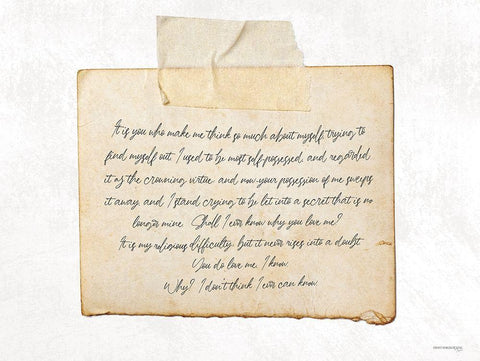 It is you who make me think so much about myself, trying to
find myself out. I used to be most self-possessed, and regarded
it as the crowning virtue: and now your possession of me sweeps
it away, and I stand crying to be let into a secret that is no
longer mine. Shall I ever know why you love me?
It is my religious difficulty; but it never rises into a doubt.
You do love me, I know.
Why? I don't think I ever can know.